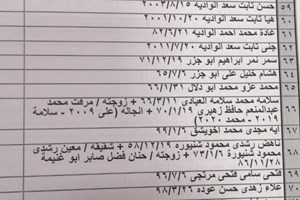 ٥٩ حسن ثابت سعد الوادية ٢٠٠٣/٨/١٥
٦٠ هيا ثابت سعد الوادية ٢٠٠١/١٠/٢٠
٦١ غادة محمد احمد الوادية ٨٢/٦/٢١
٦٢ جنى ثابت سعد الوادية ٢٠١١/٧/٢٠
٦٣ سمر نمر ابراهيم ابو جزر ٧١/١٢/١٩
٦٤ هشام خليل علي ابو جزر ٦٥/٧/٦
٦٥ محمد عزو محمد ابو دلال ٦٦/١/٣١
٦٦ سلامه محمد سلامه العيادي ٦٦/٣/١١ + زوجته / مرفت محمد
عبدالمنعم حافظ زهيري ٧٠/١/١٩ + انجاله (علي ٢٠٠٩ - سلامة
٢٠١٩ - محمد ٢٠٢٠)
٦٧ آيه مجدي محمد اخويشق ٩٩/٧/١
٦٨ ناهض رشدي محمود شنيورة ٥٨/١٢/١٩ + شقيقه / معين رشدي
محمود شنيورة ٧٣/١/٦ + زوجته / حنان فضل صابر ابو غنيمة
٨٦/١١/٢٨
٦٩ فتحي سامي فتحي مرتجى ٩٧/٧/٦
٧٠ علاء زهدي حسن عوده ٩٨/٣/٢٦